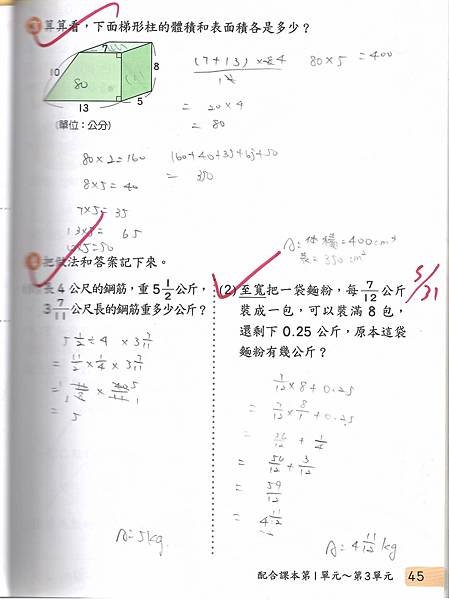 算算看，下面梯形柱的體積和表面積各是多少？
7
10
8
80
13
5
(單位：公分)
(7+13)×84
= 20×4
= 80
80×5=400
80×2=160
8×5=40
7×5=35
13×5= 65
10×5=50
160+40+35+65+50
= 350
A:体積=400cm³
表=350cm²
把做法和答案記下來。
長4公尺的鋼筋，重5 1/2 公斤，
3 7/11 公尺長的鋼筋重多少公斤？
5 1/2 ÷ 4 × 3 7/11
= 11/2 × 1/4 × 3 7/11
= 5
A:5kg
(2) 至寬把一袋麵粉，每 7/12 公斤
裝成一包，可以裝滿8包，
還剩下0.25公斤，原本這袋
麵粉有幾公斤？
5/31
7/12×8+0.25
= 7/12 × 8/1 + 0.25
= 56/12 + 1/4
= 56/12 + 3/12
= 59/12
= 4 11/12
A:4 11/12 kg
配合課本第1單元～第3單元
45